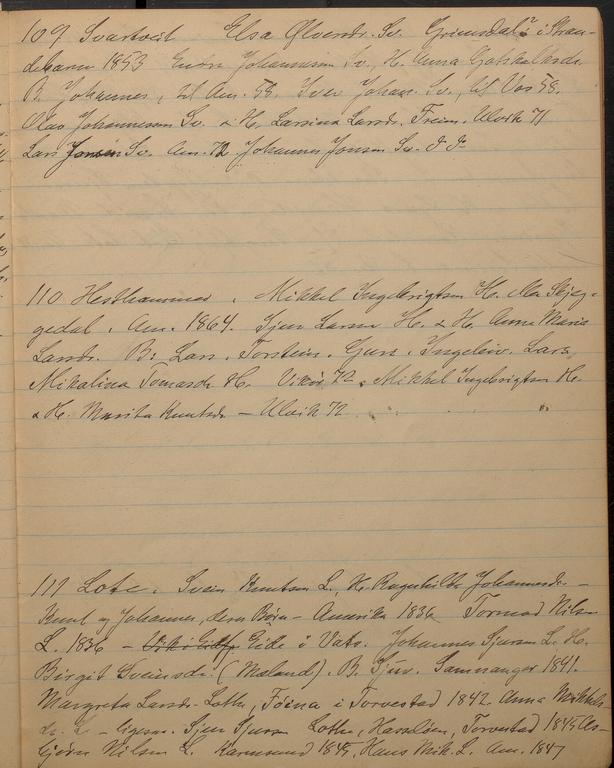 109 Svartveit Elsa Ølversdr. Sv. Grimsdal? i Stran-
debarm 1853 Endre Johannesen Sv. H. Anna Gotskalksdr.
B. Johannes, til Am. 58. Iver Johan. Sv., til Vos 58.
Olav Johannesen Sv. & H. Larsina Larsdr. Freim. Ulvik 71
Lars Jonsen Sv. Am. 72. Johannes Jonsen Sv. d. do
110 Hesthammer. Mikkel Ingebrigtsen H. Skjeg-
gedal. Am. 1864. Sjur Larsen H. & H. Anne Maria
Larsdr. B: Lars, Torstein, Guri, Ingeleiv. Lars,
Mikalina Tomasdr H. Vikør 72. Mikkel Ingebrigtsen H.
& H. Marita Knutsdr — Ulvik 72
111 Lote. Svein Knutsen L. H. Ragnhilda Johannesdr. —
Knut og Johannes, deres Børn — Amerika 1836 Tormod Nilsen
L. 1836 — Eide i Vats. Johannes Sjursen L. H.
Birgit Sveinsdr. (Mæland). B. Sjur. Samnanger 1841.
Margreta Larsdr. Lothe, Føina i Torvestad 1842. Anna Mikkels
dr. L — ligesom. Sjur Sjursen Lothe, Hasseløen, Torvestad 1845 As-
bjørn Nilsen L. Karmsund 1845, Hans Mik. L. Am. 1847